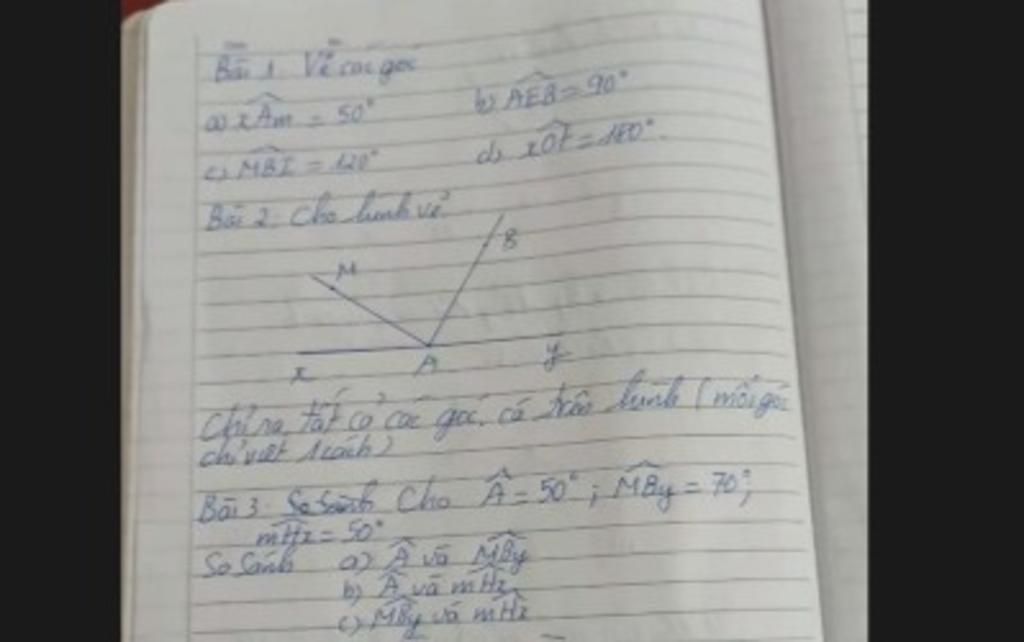 Bài 1 Vẽ các góc
a) xÂm = 50° b) AÊB = 90°
c) MB̂I = 120° d) xÔt = 180°.
Bài 2. Cho hình vẽ
M
B
x A y
Chỉ ra tất cả các góc có trên hình (mỗi góc
chỉ viết 1 cách)
Bài 3 So sánh Cho Â = 50°; MB̂y = 70°;
mĤz = 50°
So sánh a) Â và MB̂y
b) Â và mĤz
c) MB̂y và mĤz